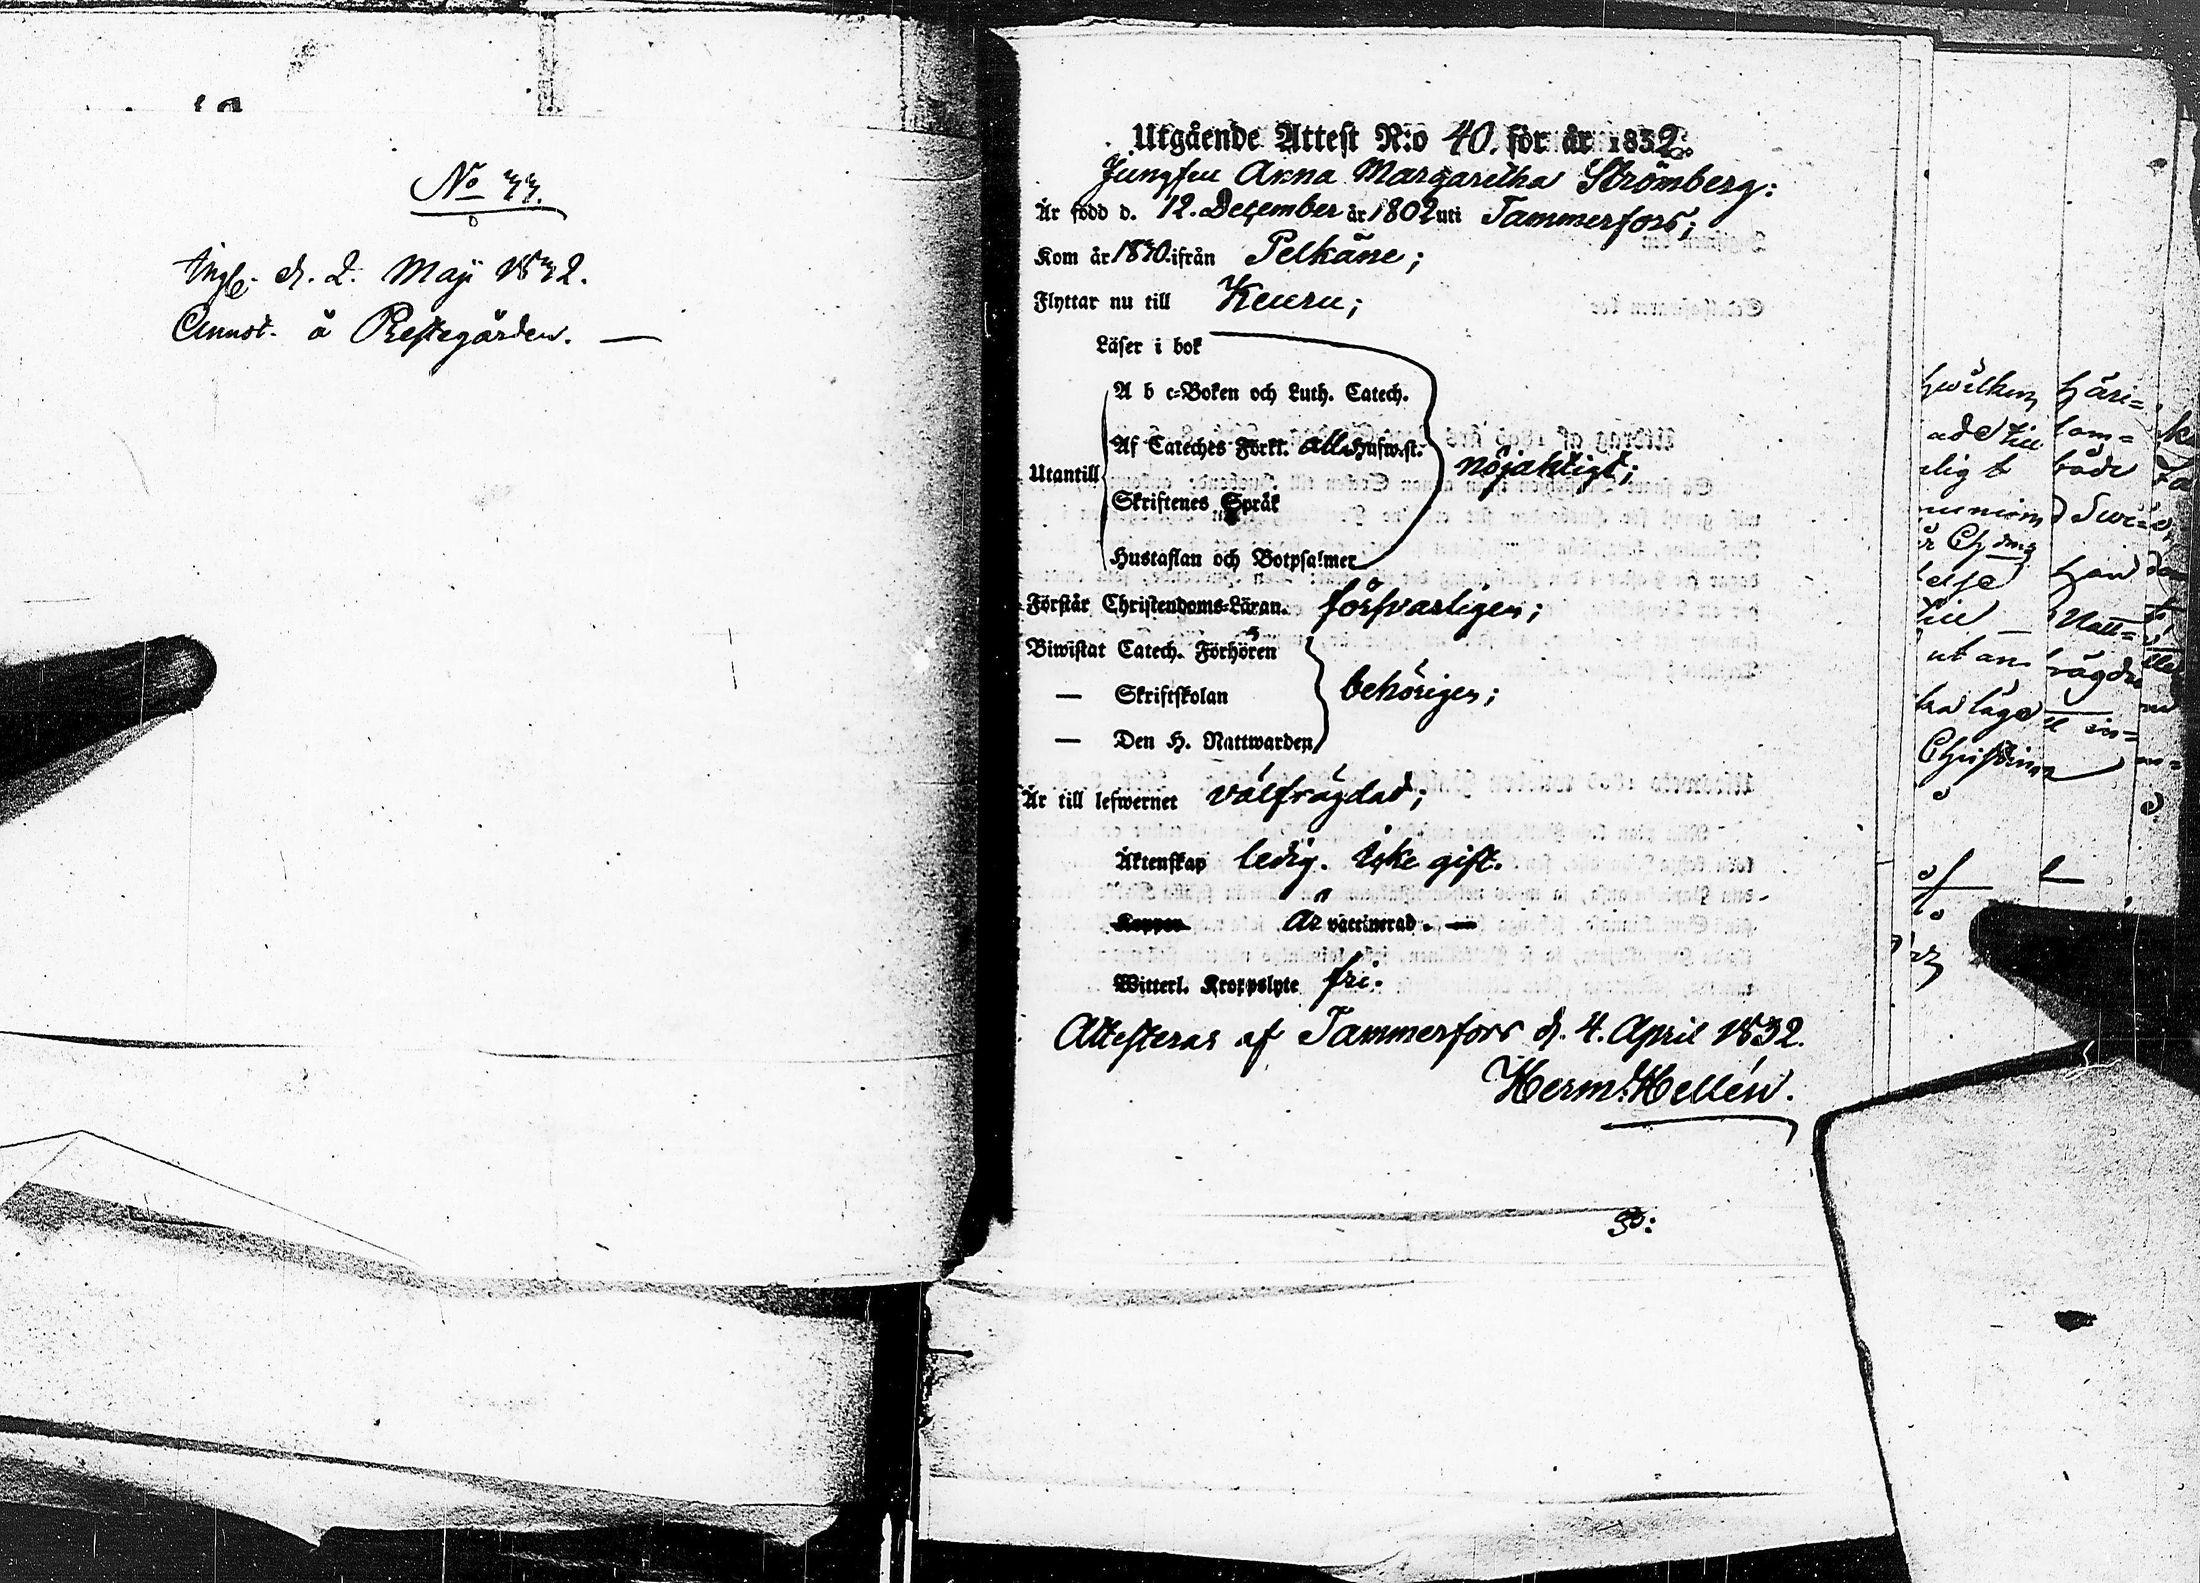 No 33.
Ingb. d. 2. Maji 1832.
Annot. å Prestegården. —
Utgående Attest N:o 40. för år 1832.
Jungfru Anna Margaretha Strömberg:
Är född d. 12. December år 1802 uti Tammerfors;
Kom år 1830. ifrån Pelkäne;
Flyttar nu till Keuru;
Läser i bok
A b c-Boken och Luth. Catech.
Af Cateches Förkl. all. Husw.st.
Utantill
nöjaktigt;
Skriftenes Språk
Hustaflan och Botpsalmer
Förstår Christendoms-Läran. försvarligen;
Biwistat Catech. Förhören
— Skriftskolan behörigen;
— Den H. Nattwarden
Är till lefwernet välfrägdad;
Äktenskap ledig. Icke gift.
Koppor Är vaccinerad. —
Witterl. Kroppslyte fri.
Attesteras af Tammerfors d. 4. April 1832.
Herm. Hellén.
hwilken Häri=
ade till kom=
ligt både
Christina